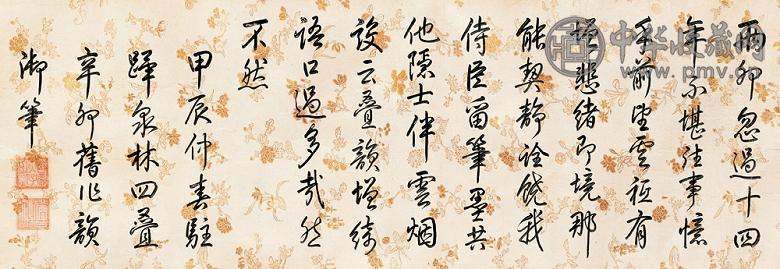 兩卯忽過十四
年不堪往事憶
乎前望雲祗有
增悲緒即境那
能契靜詮饒我
侍臣留筆墨共
他隱士伴雲烟
設云疊韻增綺
語口過多哉然
不然
甲辰仲春駐
蹕泉林四疊
辛卯舊作韻
御筆
中华收藏网